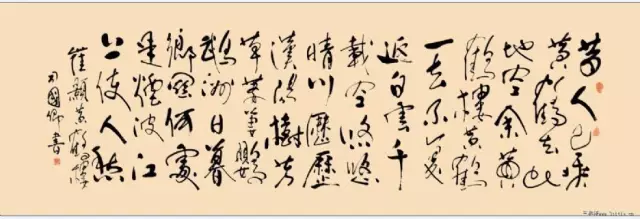 昔人已乘
黄鶴去此
地空余黄
鶴樓黄鶴
一去不復
返白雲千
載空悠悠
晴川歷歷
漢陽樹芳
草萋萋鸚
鵡洲日暮
鄉關何處
是煙波江
上使人愁
崔顥黄鶴樓
國卿書